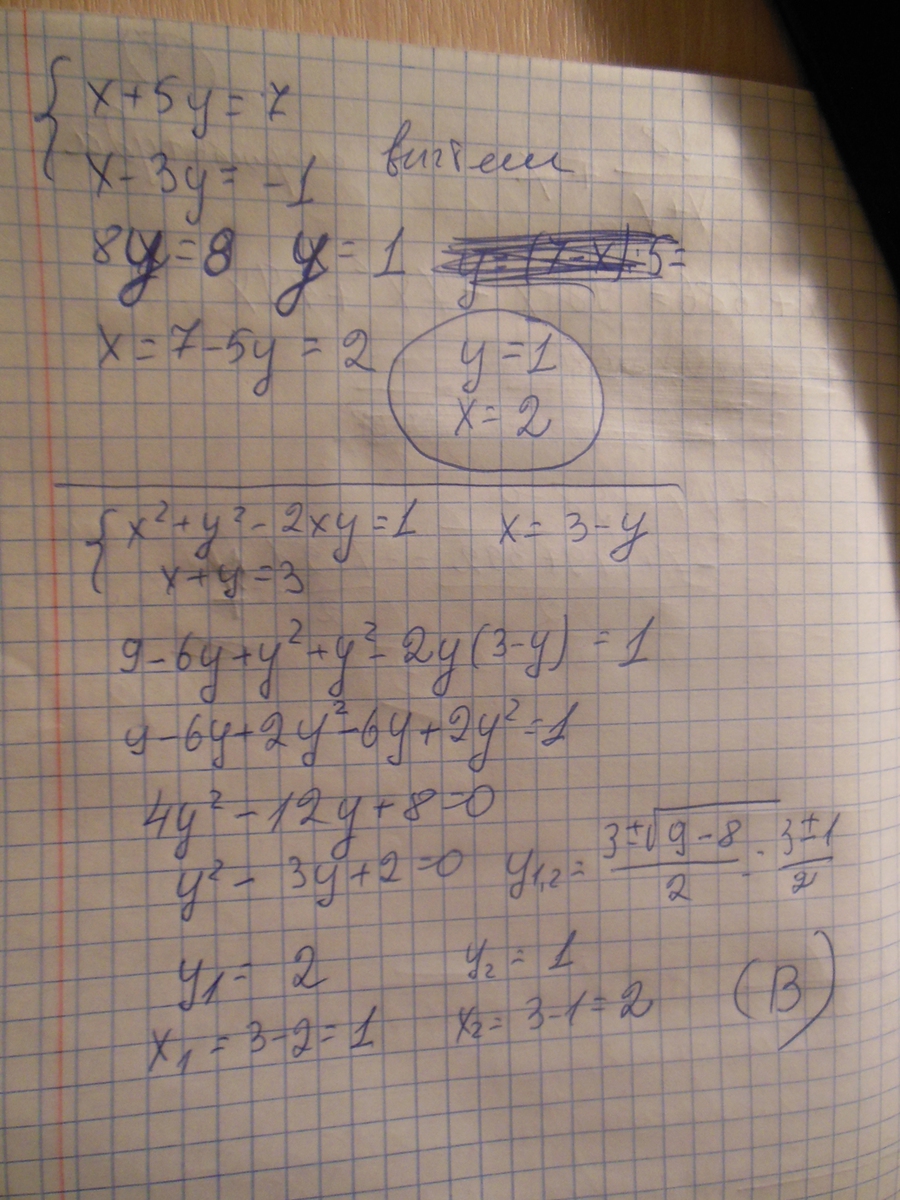 { x + 5y = 7
x - 3y = -1 вычтем
8y = 8 y = 1
x = 7 - 5y = 2 y = 1
x = 2
{ x² + y² - 2xy = 1 x = 3 - y
x + y = 3
9 - 6y + y² + y² - 2y(3 - y) = 1
9 - 6y + 2y² - 6y + 2y² = 1
4y² - 12y + 8 = 0
y² - 3y + 2 = 0 y₁,₂ = (3 ± √(9 - 8))/2 = (3 ± 1)/2
y₁ = 2 y₂ = 1
x₁ = 3 - 2 = 1 x₂ = 3 - 1 = 2 (В)